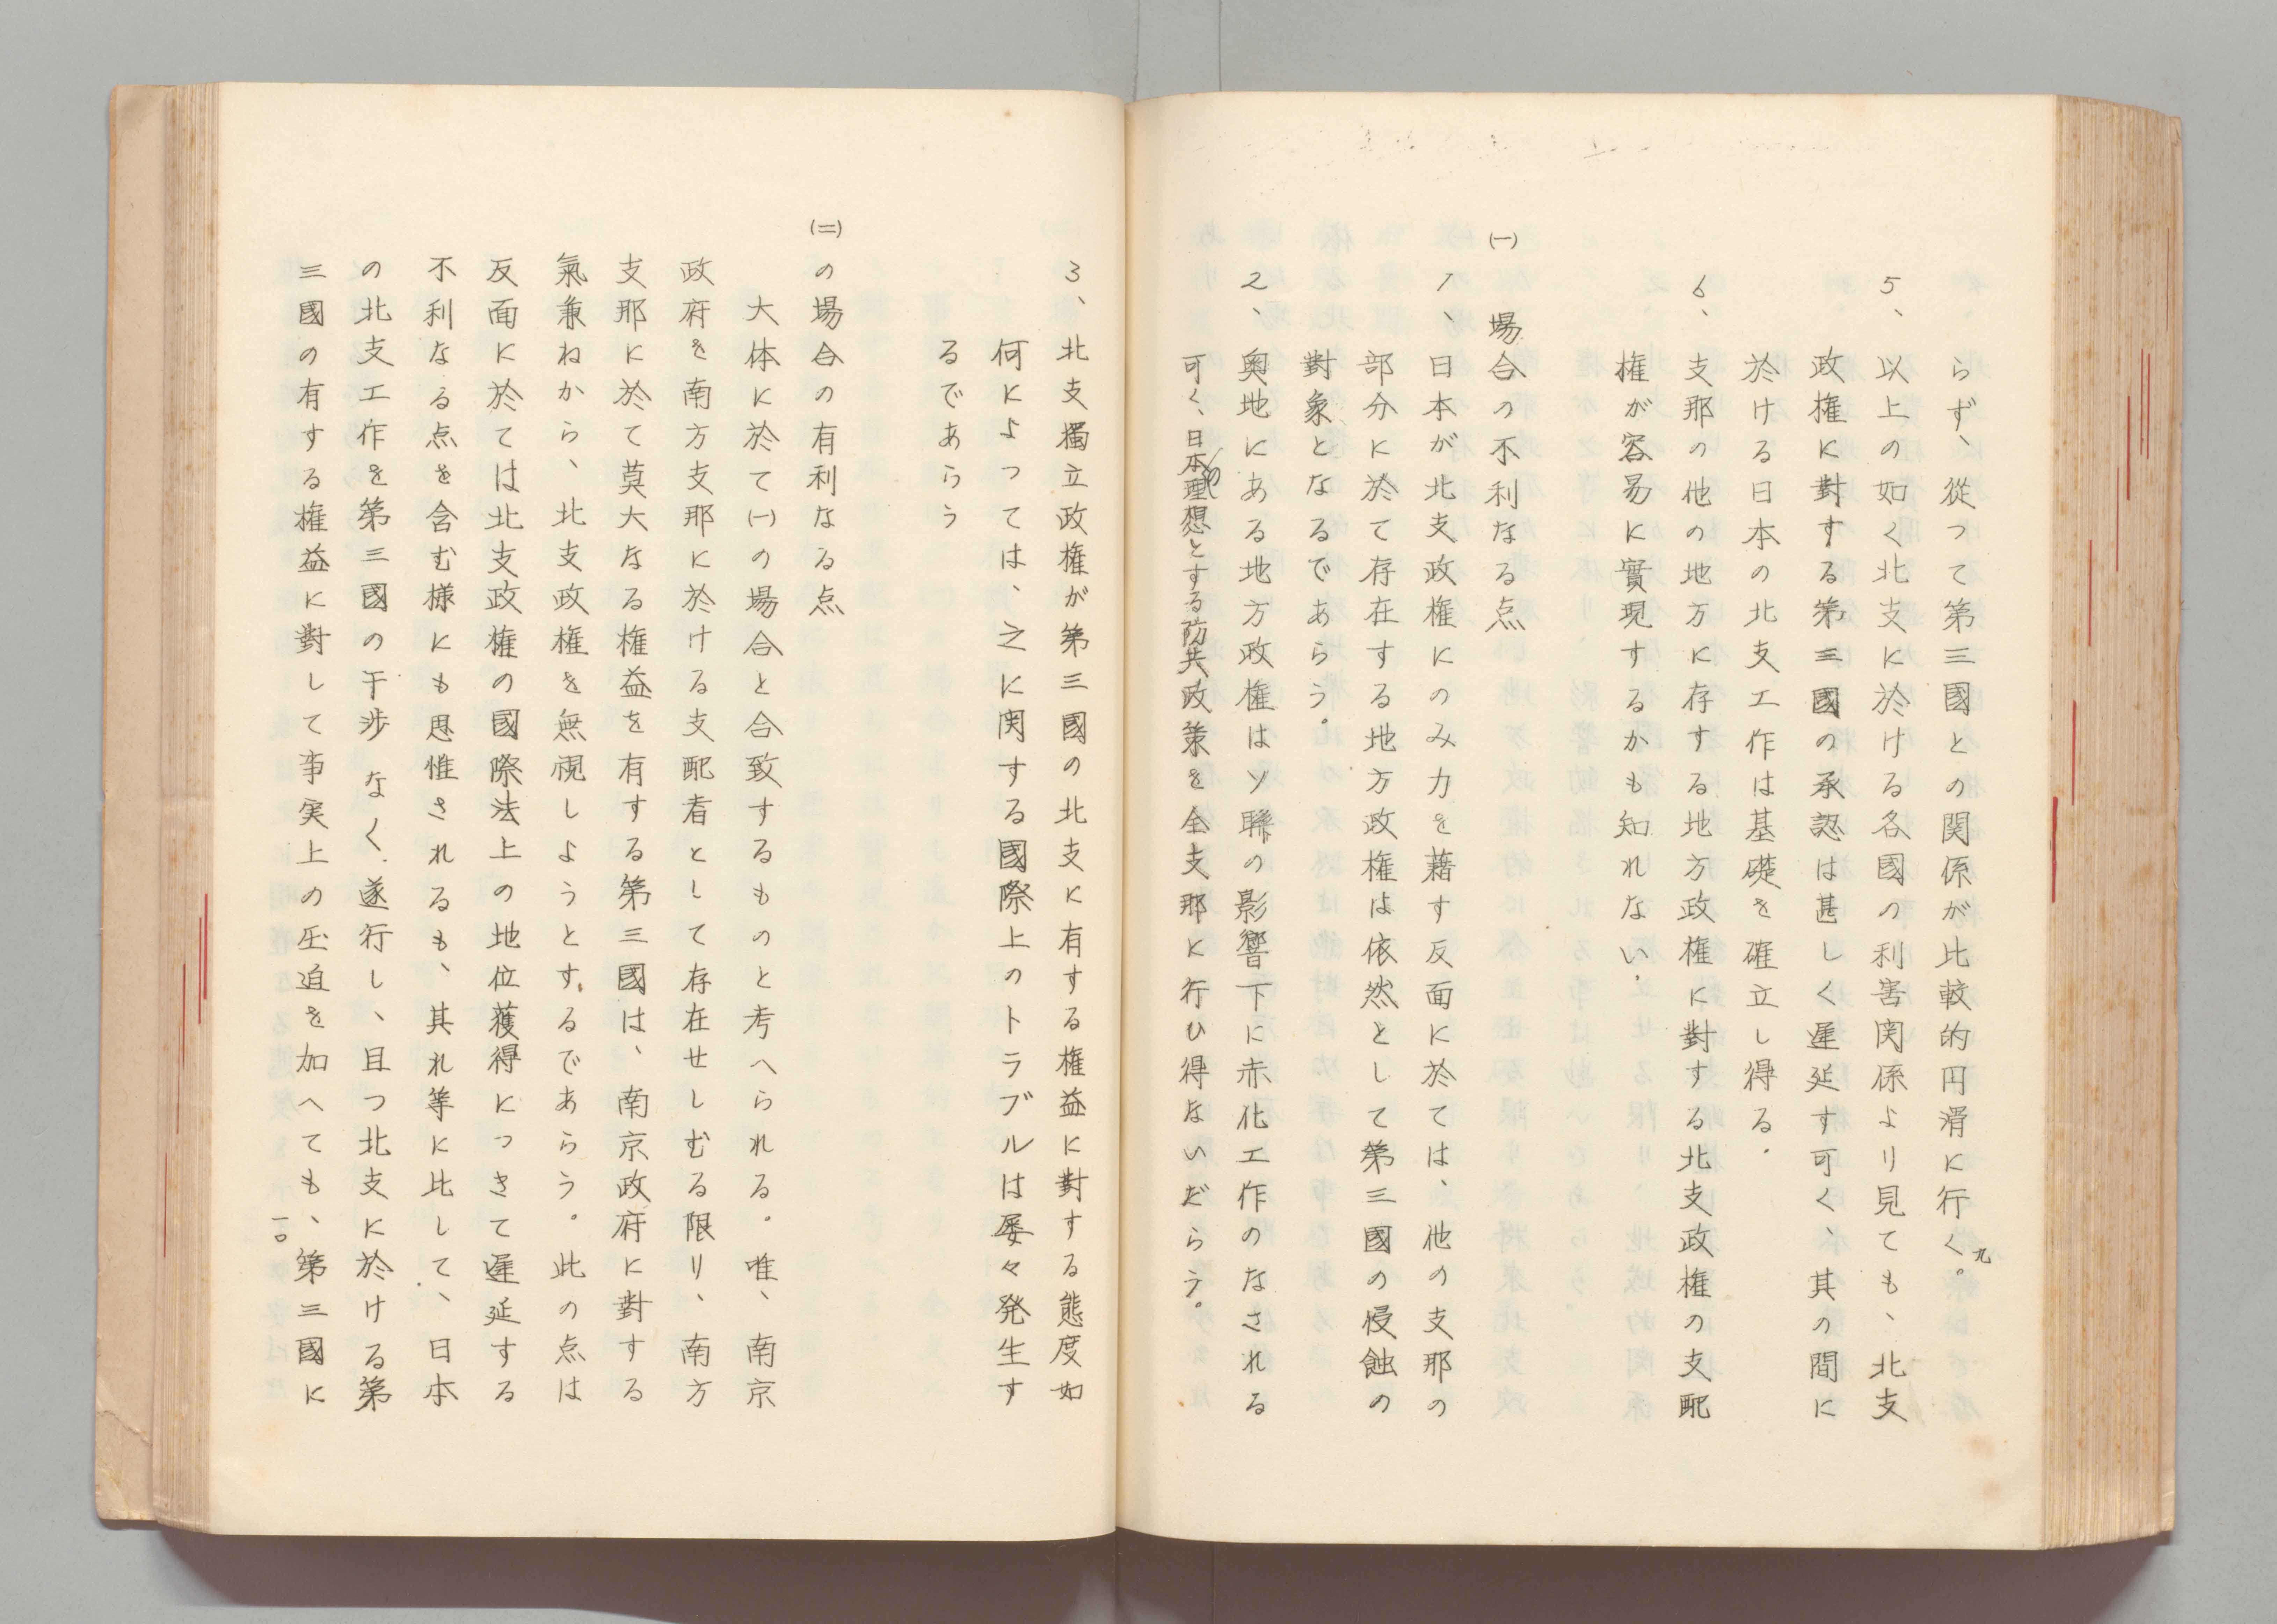 らず、從つて第三國との関係が比較的円滑に行く。
5、以上の如く北支に於ける各國の利害関係より見ても、北支
政権に對する第三國の承認は甚しく遅延す可く、其の間に
於ける日本の北支工作は基礎を確立し得る。
6、支那の他の地方に存する地方政権に對する北支政権の支配
権が容易に實現するかも知れない。
(一)場合の不利なる点
1、日本が北支政権にのみ力を藉す反面に於ては、他の支那の
部分に於て存在する地方政権は依然として第三國の侵蝕の
對象となるであらう。
2、奥地にある地方政権はソ聯の影響下に赤化工作のなされる
可く、日本の理想とする防共政策を全支那に行ひ得ないだらう。
九
3、北支獨立政権が第三國の北支に有する権益に對する態度如
何によつては、之に関する國際上のトラブルは屡々発生す
るであらう
(二)の場合の有利なる点
大体に於て(一)の場合と合致するものと考へられる。唯、南京
政府を南方支那に於ける支配者として存在せしむる限り、南方
支那に於て莫大なる権益を有する第三國は、南京政府に對する
氣兼ねから、北支政権を無視しようとするであらう。此の点は
反面に於ては北支政権の國際法上の地位獲得につきて遅延する
不利なる点を含む様にも思惟されるも、其れ等に比して、日本
の北支工作を第三國の干渉なく遂行し、且つ北支に於ける第
三國の有する権益に對して事実上の圧迫を加へても、第三國に
一〇